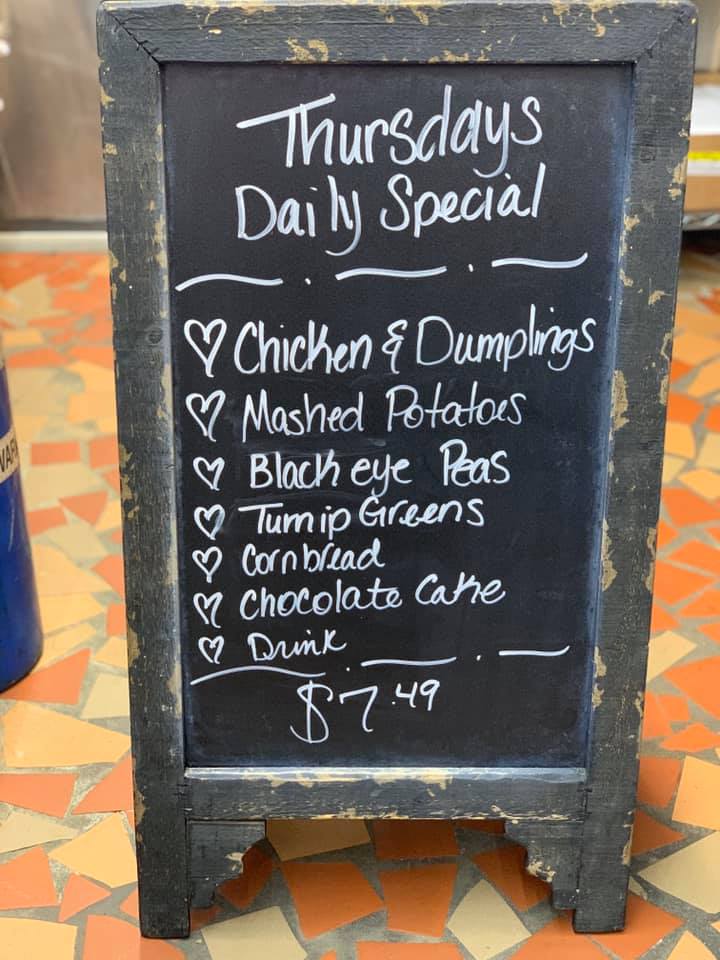 Thursdays
Daily Special
Chicken & Dumplings
Mashed Potatoes
Black eye Peas
Turnip Greens
Cornbread
Chocolate Cake
Drink
$7.49